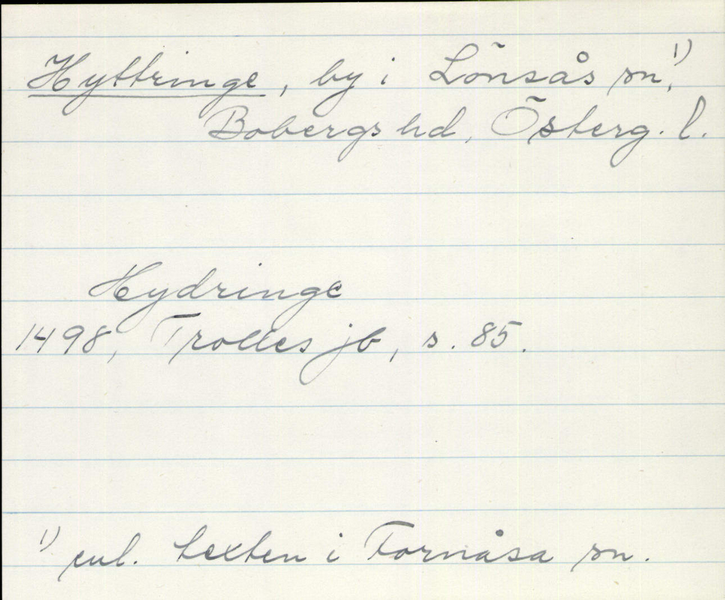 Hyttringe, by i Lönsås sn,¹⁾
Bobergs hd, Österg. l.
Hydringe
1498, Trolles jb, s. 85.
¹⁾ enl. texten i Fornåsa sn.